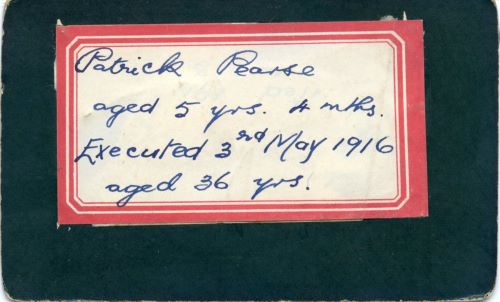 Patrick Pearse
aged 5 yrs. 4 mths.
Executed 3rd May 1916
aged 36 yrs.